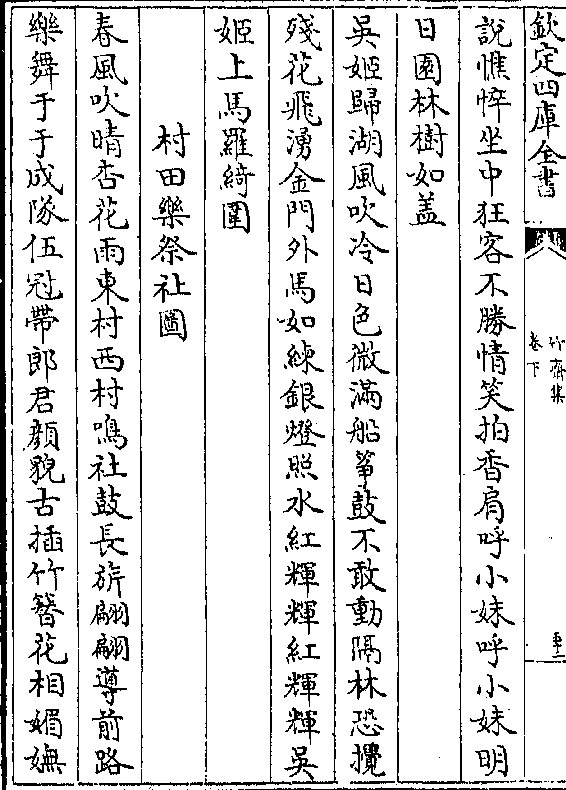 欽定四庫全書
竹齋集
卷下
說憔悴坐中狂客不勝情笑拍香肩呼小妹呼小妹明
日園林樹如盖
吳姬歸湖風吹冷日色微滿船箏鼓不敢動隔林恐攪
殘花飛湧金門外馬如練銀燈照水紅輝輝紅輝輝吳
姬上馬羅綺圍
村田樂祭社圖
春風吹晴杏花雨東村西村鳴社鼓長旂翩翩導前路
樂舞于于成隊伍冠帶郎君顏貌古插竹簪花相媚嫵